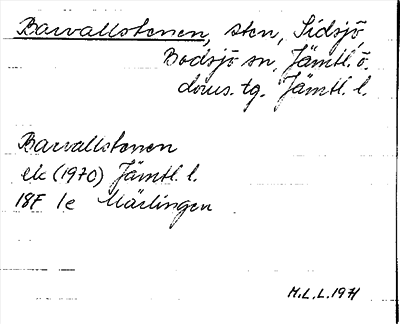 Barvallstenen, sten, Sidsjö,
Bodsjö sn, Jämtl. ö.
doms. tg. Jämtl. l.
Barvallstenen
ek (1970) Jämtl. l.
18F 1e Märlingen
M.L.L. 1971